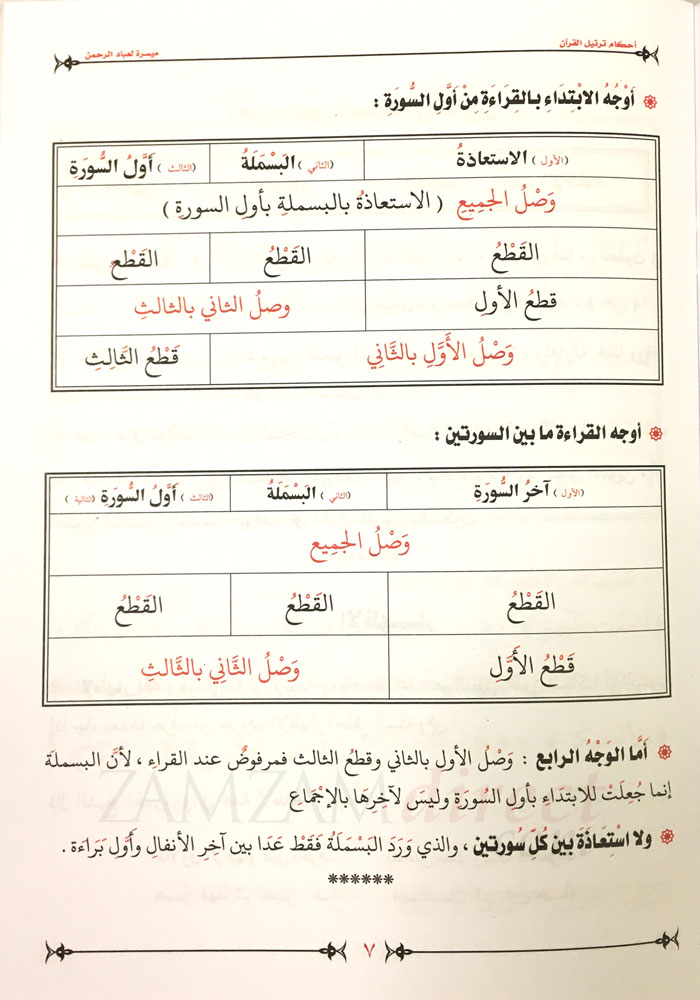 أحكام ترتيل القرآن
ميسرة لعباد الرحمن
أَوْجُهُ الابْتِدَاءِ بالقِرَاءَةِ مِنْ أَوَّلِ السُّورَةِ :
(الأول) الاستعاذةُ (الثاني) البَسْمَلَةُ (الثالث) أَوَّلُ السُّورَةِ
وَصْلُ الجَمِيعِ ( الاستعاذةُ بالبسملةِ بأولِ السورةِ )
القَطْعُ القَطْعُ القَطْعُ
قطعُ الأولِ وصلُ الثاني بالثالثِ
وَصْلُ الأَوَّلِ بالثَّانِي قَطْعُ الثَّالِثِ
أوجه القراءة ما بين السورتين :
(الأول) آخرُ السُّورَةِ (الثاني) البَسْمَلَةُ (الثالث) أَوَّلُ السُّورَةِ (التالية)
وَصْلُ الجَمِيعِ
القَطْعُ القَطْعُ القَطْعُ
قَطْعُ الأَوَّلِ وَصْلُ الثَّانِي بالثَّالثِ
أمَّا الوَجْهُ الرابع : وَصْلُ الأول بالثاني وقطعُ الثالث فمرفوضٌ عند القراءِ ، لأنَّ البسملة
إنما جُعِلَتْ للابتداءِ بأولِ السُّورَةِ وليسَ لآخِرِهَا بالإجْمَاع
ولا اسْتِعَاذَةَ بين كُلِّ سورتين ، والذي وَرَدَ البَسْمَلَةُ فَقَطْ عَدَا بين آخِرِ الأنفال وأوَّلِ بَرَاءَة .
******
ZAMZAMdirect
٧